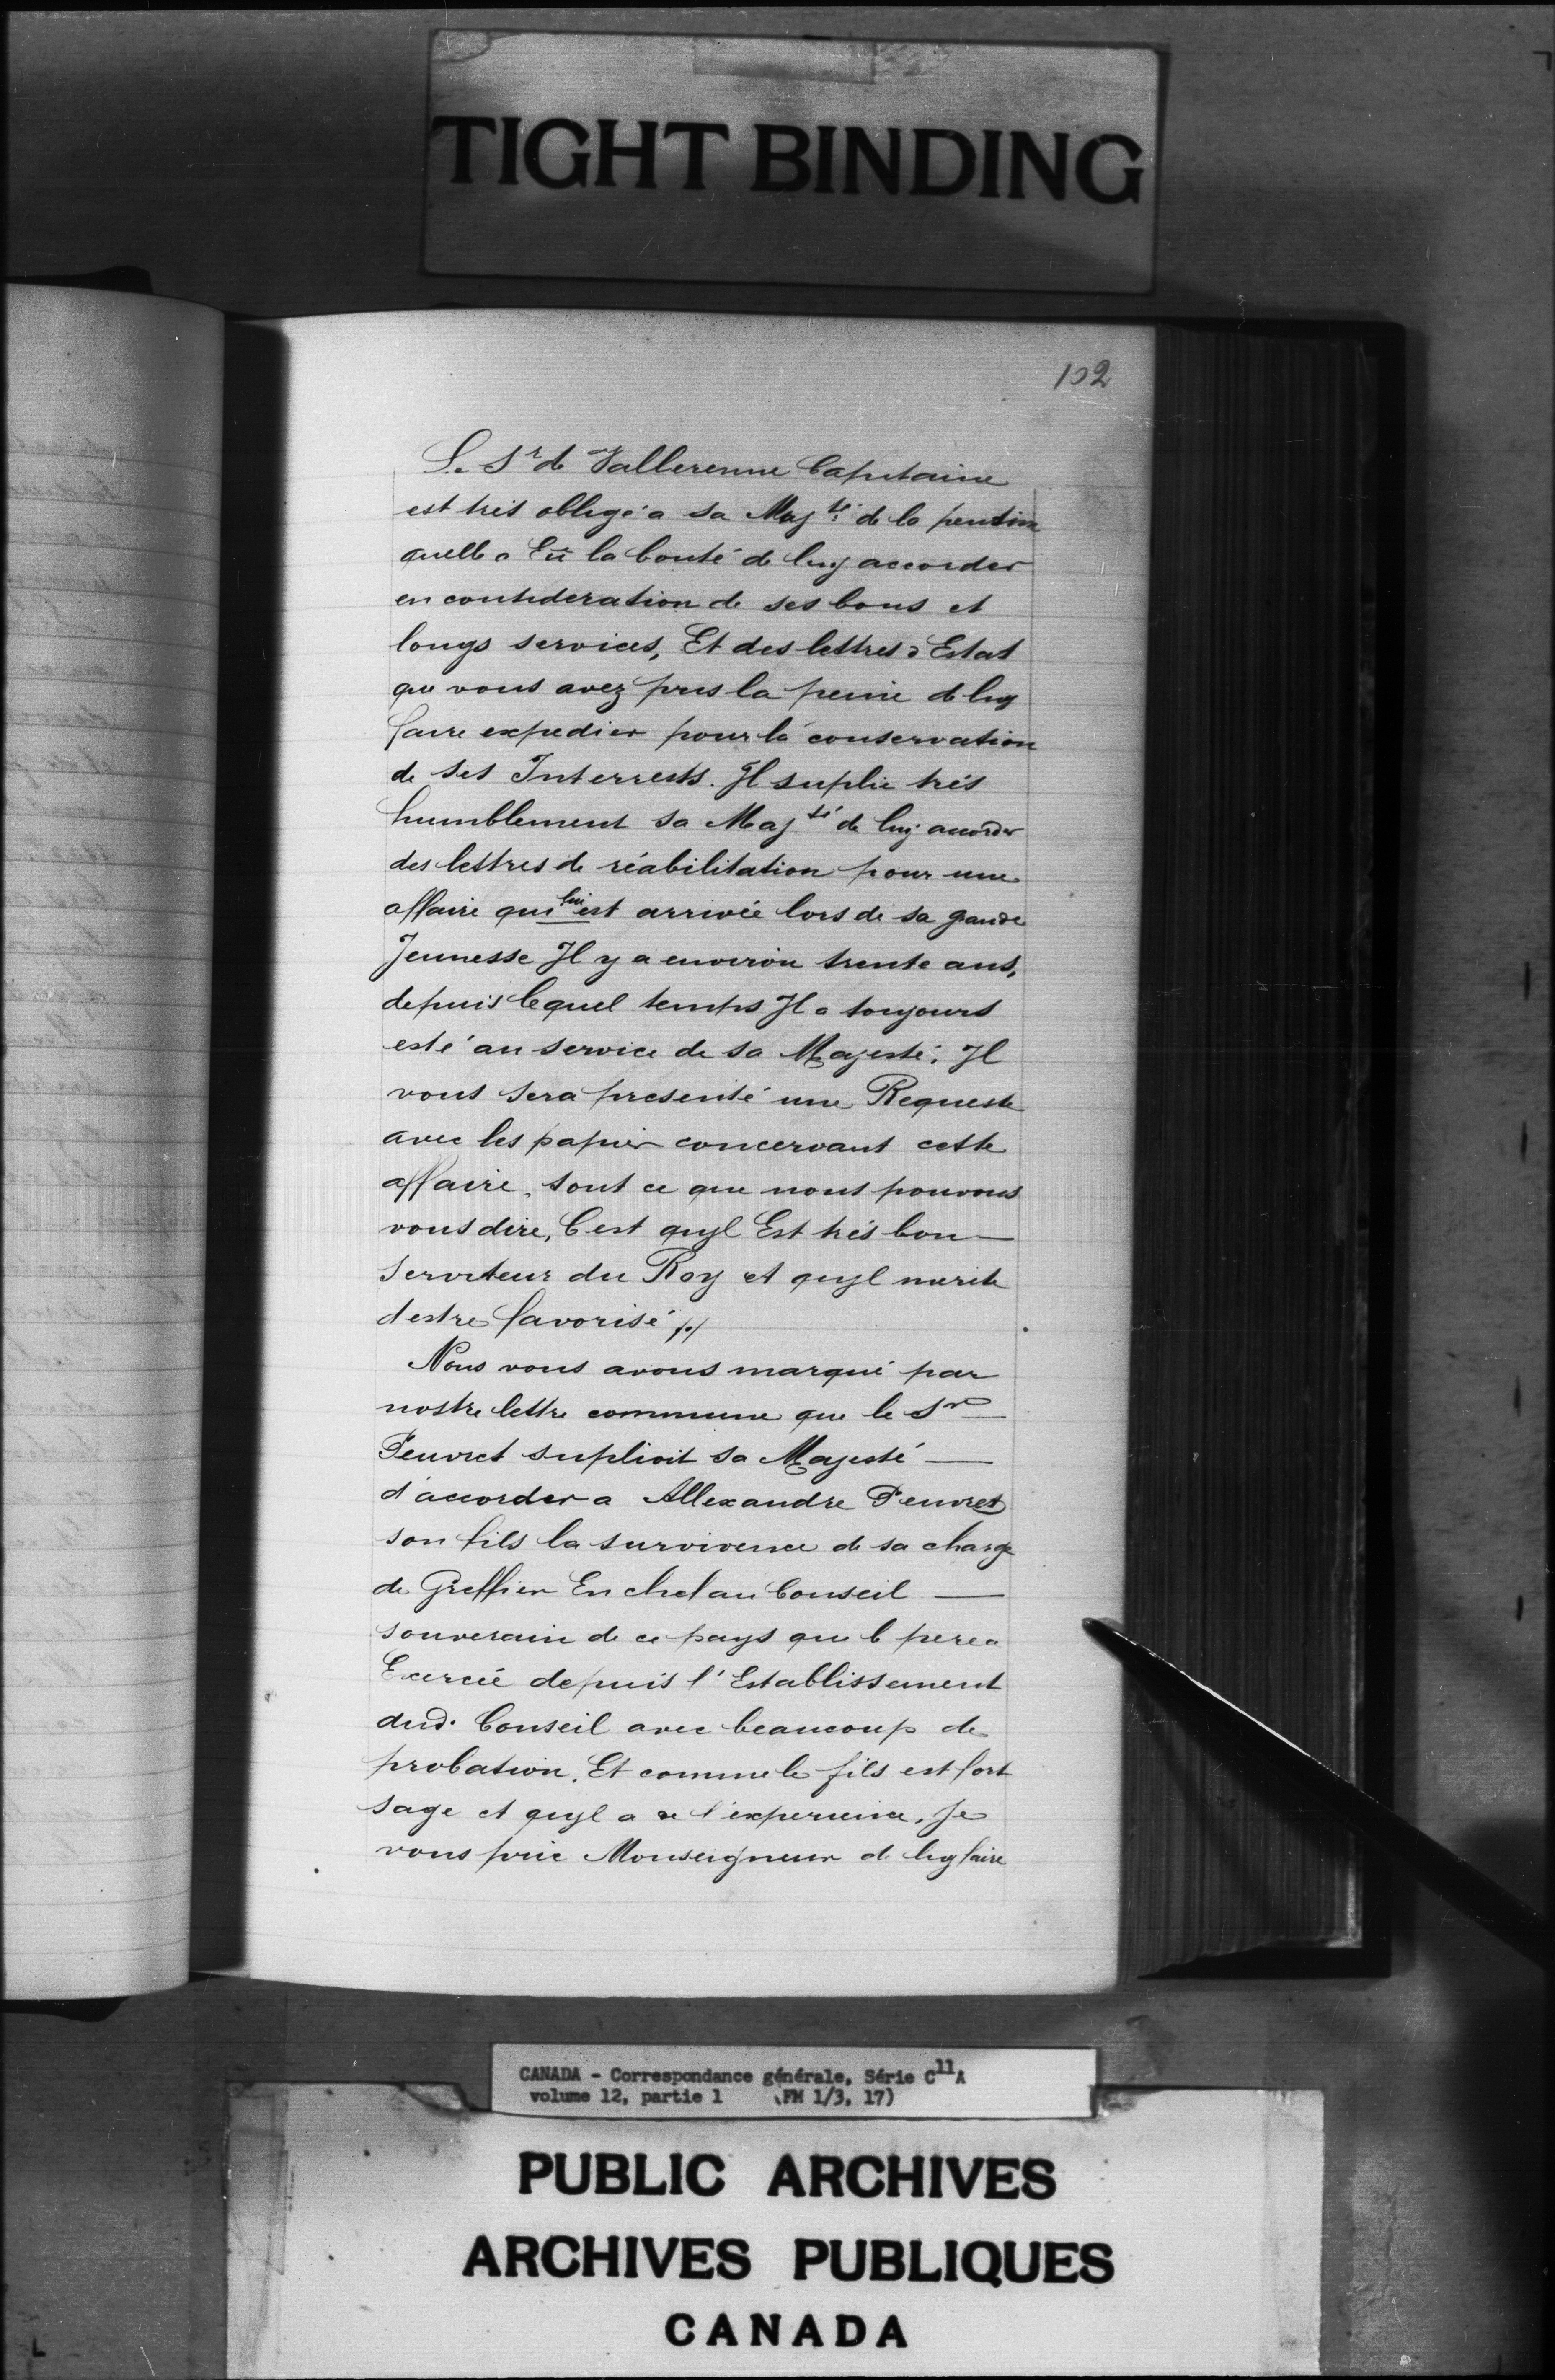 TIGHT BINDING
102
Le Sr de Vallerenne Capitaine
est trés obligé a sa Majté de la pention
quelle a Eü la bonté de luy accorder
en consideration de ses bons et
longs services, Et des lettres d'Estat
que vous avez pris la peine de luy
faire expedier pour la conservation
de ses Interrests. Il suplie trés
humblement sa Majté de luy accorder
des lettres de réabilitation pour une
affaire qui lui est arrivée lors de sa grande
Jeunesse Il y a environ trente ans,
depuis lequel temps Il a toujours
esté au service de sa Majesté; Il
vous sera presenté une Requeste
avec les papier concervant cette
affaire, tout ce que nous pouvons
vous dire, C'est quyl Est trés bon
Serviteur du Roy et quyl merite
destre favorisé /./
Nous vous avons marqué par
nostre lettre commune que le Sr
Peuvret suplioit sa Majesté
d'accorder a Allexandre Peuvret
son fils la survivence de sa charge
de Greffier En chef au Conseil
souverain de ce pays que le pere a
Exercée depuis l'Establissement
dud. Conseil avec beaucoup de
probation. Et comme le fils est fort
sage et quyl a de l'experience, Je
vous prie Monseigneur de luy faire
CANADA - Correspondance générale, Série C11A
volume 12, partie 1 (FM 1/3, 17)
PUBLIC ARCHIVES
ARCHIVES PUBLIQUES
CANADA